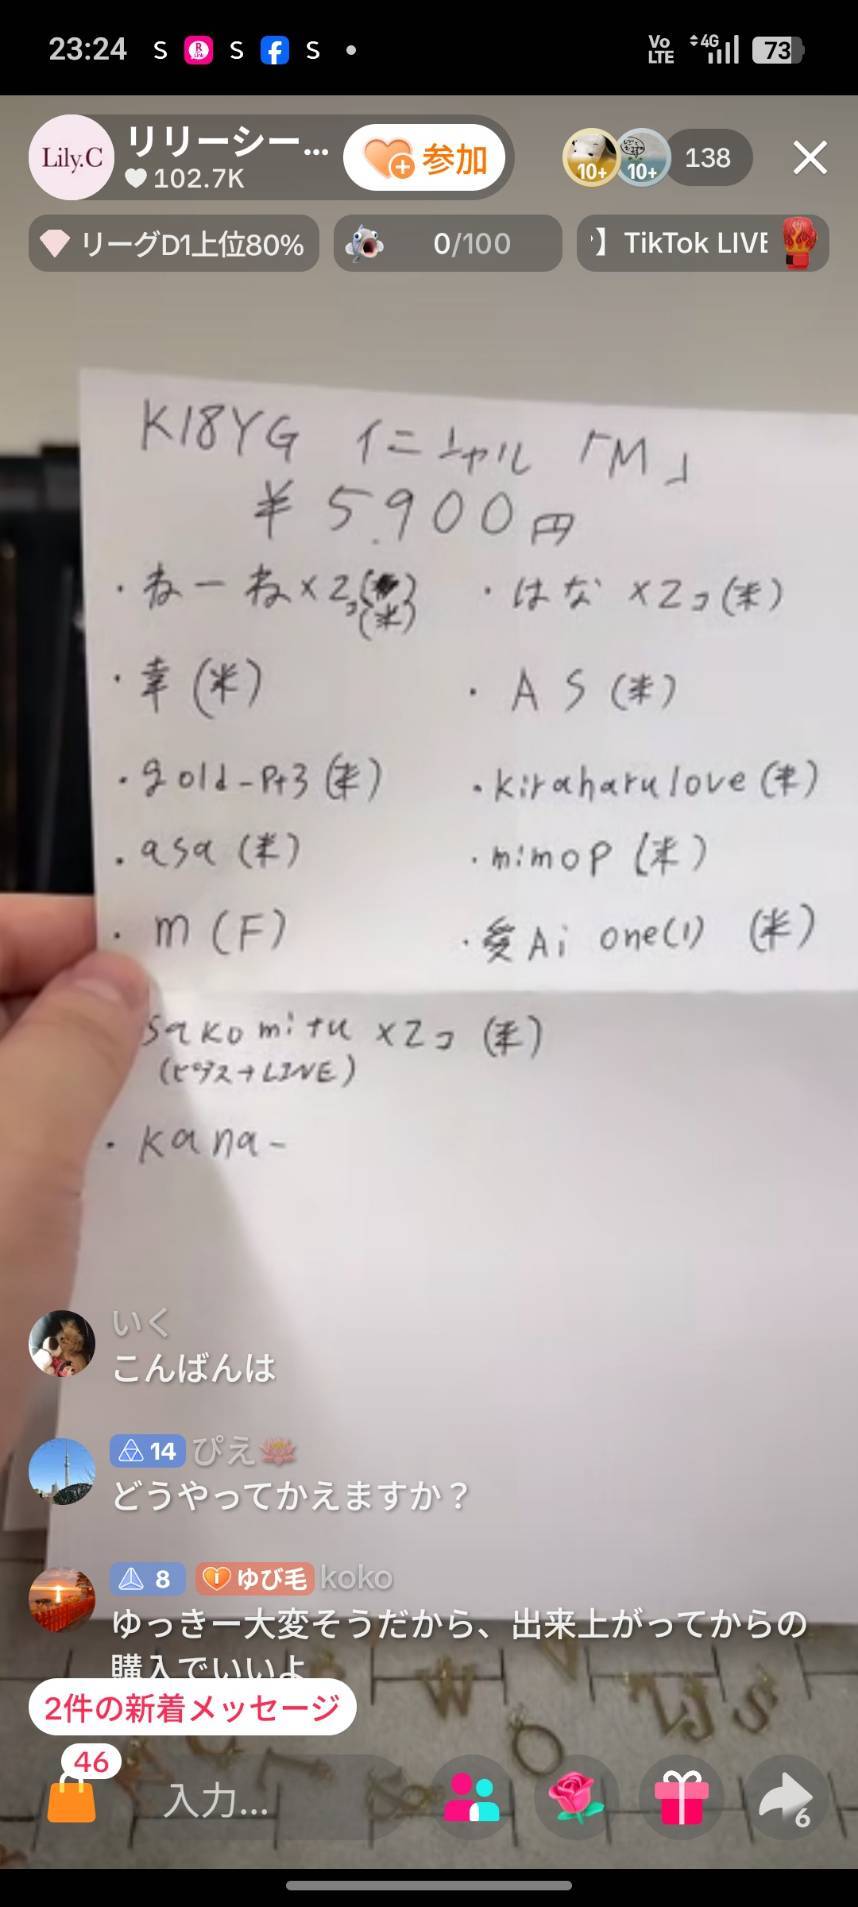 23:24 S S S
Vo LTE 4G 73
Lily.C リリーシー... 参加
102.7K
10+ 10+ 138
リーグD1上位80% 0/100 】TikTok LIVE
K18YG イニシャル「M」
¥5,900円
・ねーね×2コ(米) ・はな×2コ(米)
・幸(米) ・AS(米)
・gold-Pt3(米) ・kiraharulove(米)
・asa(米) ・mimoP(米)
・m(F) ・愛Ai one(1)(米)
sakomitu×2コ(米)
(ピアス→LINE)
・kana-
いく
こんばんは
14 ぴえ
どうやってかえますか?
8 ゆび毛 koko
ゆっきー大変そうだから、出来上がってからの
購入でいいよ
2件の新着メッセージ
46
入力... 6
W V
S